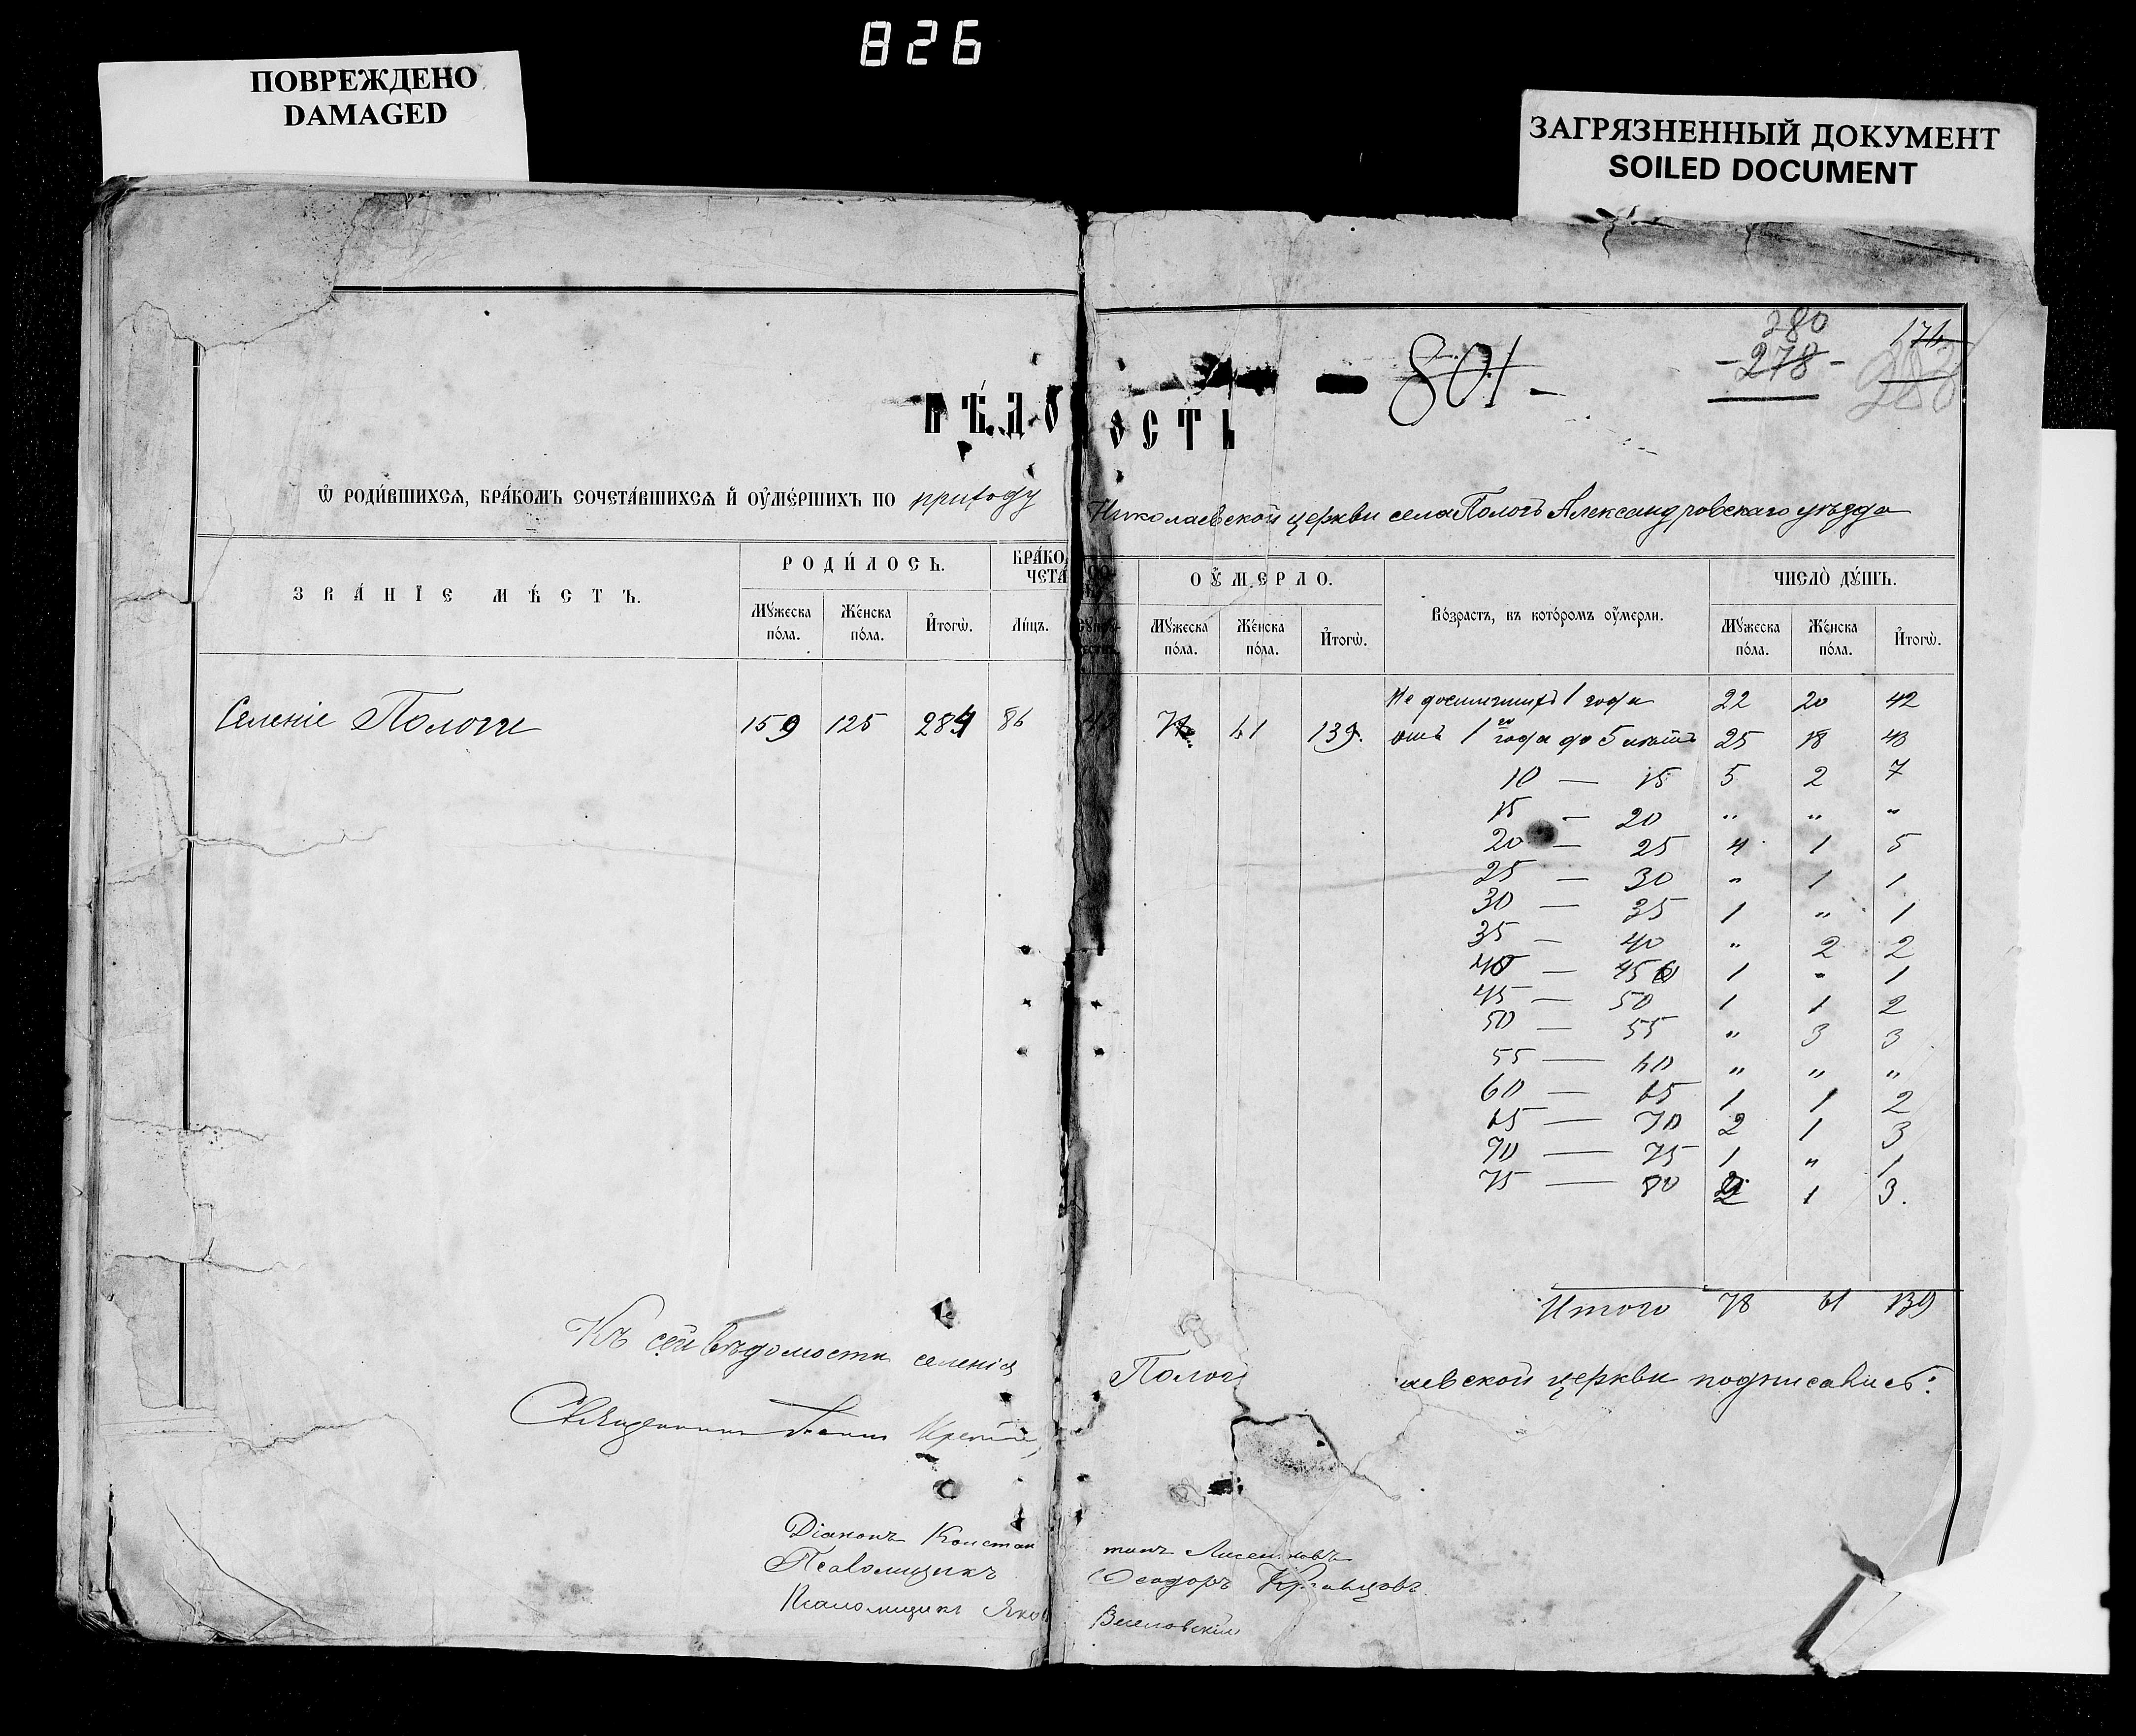 826
ПОВРЕЖДЕНО
DAMAGED
ЗАГРЯЗНЕННЫЙ ДОКУМЕНТ
SOILED DOCUMENT
801 -
280
- 278 -
174
ВѢДОМОСТЬ
Ѡ РОДИ́ВШИХСѦ, БРА́КОМЪ СОЧЕТА́ВШИХСѦ И҆ ОУ҆МЕ́РШИХЪ ПО приходу Николаевской церкви села Пологъ Александровскаго уѣзда
ЗВА́НІЕ МѢ́СТЪ. РОДИ́ЛОСЬ. БРА́КО ЧЕТА ОУ҆́МЕРЛО. Во́зрастъ, въ кото́ромъ оу҆́мерли. ЧИСЛО̀ ДУ́ШЪ.
Му́жеска по́ла. Же́нска по́ла. И҆тогѡ̀. Ли́цъ. Му́жеска по́ла. Же́нска по́ла. И҆тогѡ̀. Му́жеска по́ла. Же́нска по́ла. И҆тогѡ̀.
Селеніе Пологи 159 125 284 86 43 78 61 139.
Не достигшихъ 1 года 22 20 42
отъ 1го года до 5 лѣтъ 25 18 43
10 — 15 5 2 7
15 — 20 " " "
20 — 25 4 1 5
25 — 30 " 1 1
30 — 35 1 " 1
35 — 40 " 2 2
40 — 45 1 " 1
45 — 50 1 1 2
50 — 55 " 3 3
55 — 60 " " "
60 — 65 1 1 2
65 — 70 2 1 3
70 — 75 1 " 1
75 — 80 2 1 3.
Итого 78 61 139
Къ сей вѣдомости селенія Полог аевской церкви подписались:
Священникъ
Діаконъ Константинъ Лисенковъ
Псаломщикъ Ѳеодоръ Кравцовъ
Псаломщикъ Яков Веселовскій